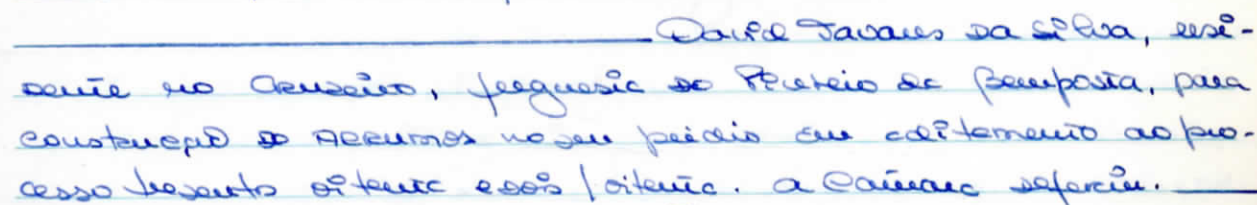 David Tavares da Silva, resi-
dente no Cruzeiro, freguesia do Pinheiro da Bemposta, para
construção de Arrumos no seu prédio em aditamento ao pro-
cesso trezentos oitenta e dois / oitenta. a Câmara deferiu.